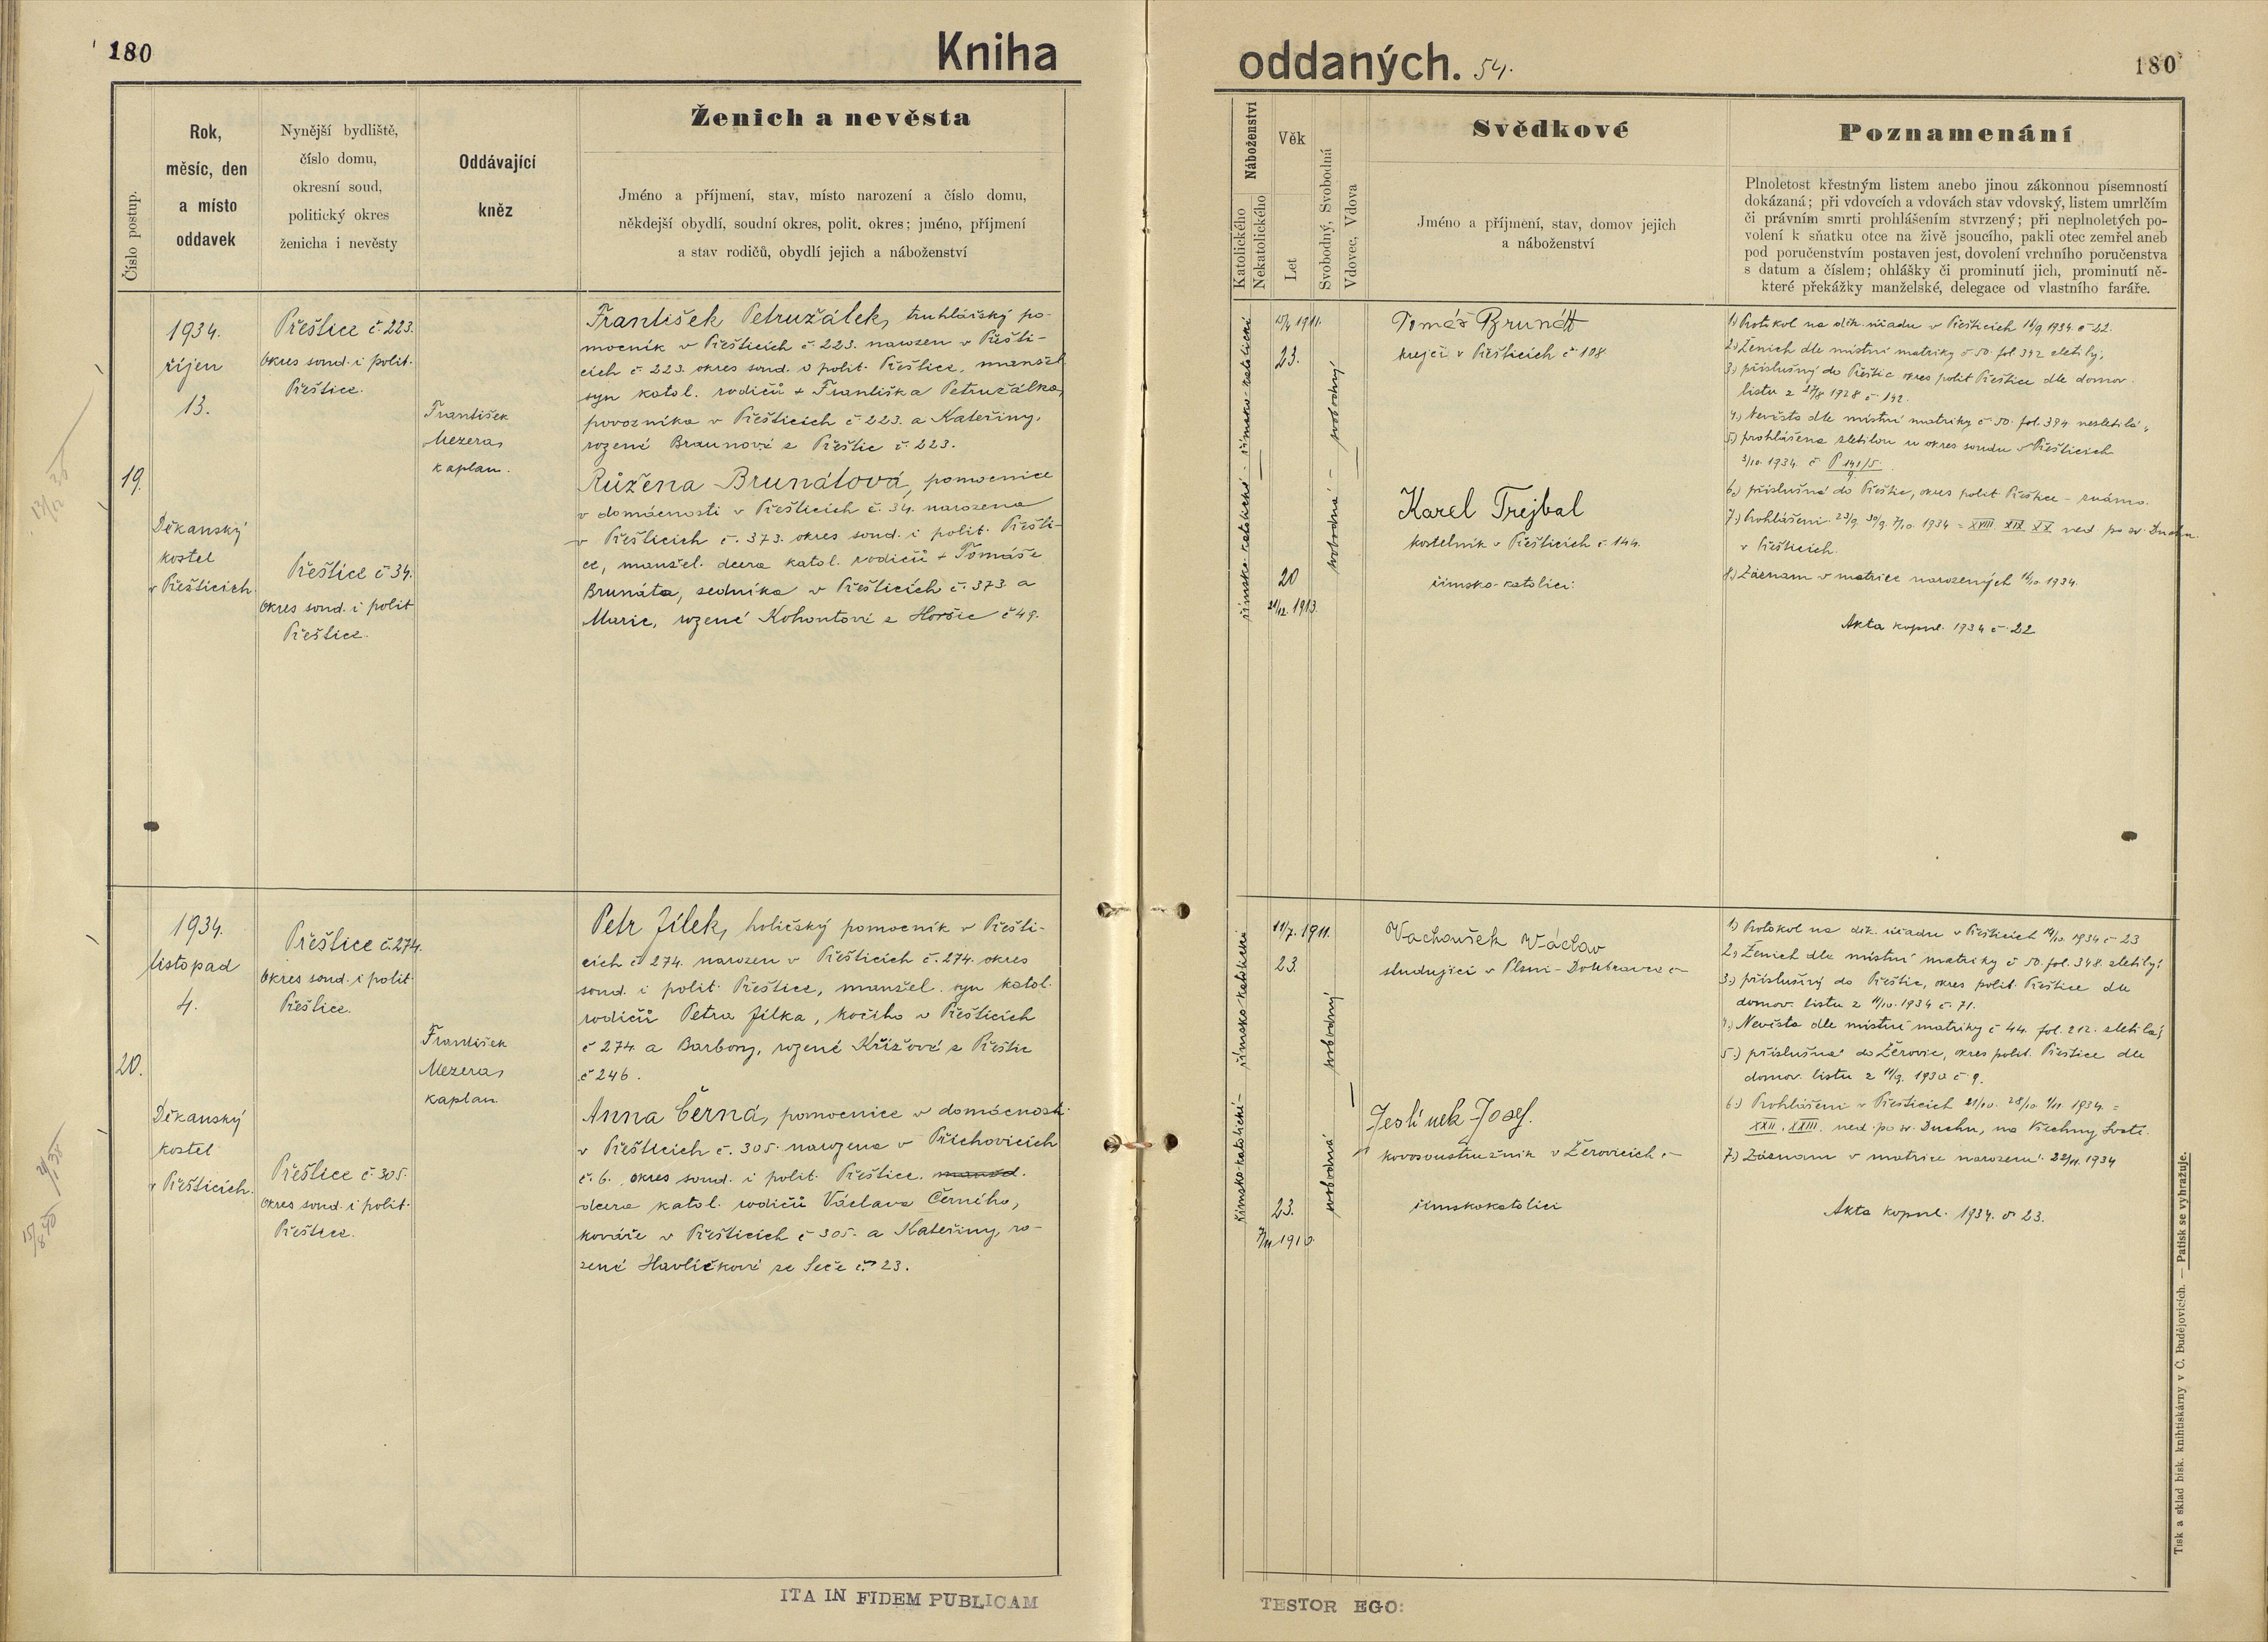 180
Kniha
Číslo postup.
Rok,
měsíc, den
a místo
oddavek
Nynější bydliště,
číslo domu,
okresní soud,
politický okres
ženicha i nevěsty
Oddávající
kněz
Ženich a nevěsta
Jméno a příjmení, stav, místo narození a číslo domu,
někdejší obydlí, soudní okres, polit. okres; jméno, příjmení
a stav rodičů, obydlí jejich a náboženství
19.
1934.
říjen
13.
Děkanský
kostel
v Přešticích.
Přeštice č. 223.
Okres soud. i polit.
Přeštice.
Přeštice č 34.
Okres soud. i polit
Přeštice.
František
Mezera,
kaplan.
František Petružálek, truhlářský po-
mocník v Přešticích č. 223. narozen v Přešti-
cích č. 223. okres soud. i polit. Přeštice, manžel.
syn katol. rodičů + Františka Petružálka,
povozníka v Přešticích č. 223. a Kateřiny,
rozené Braunové z Přeštic č. 223.
Růžena Brunátová, pomocnice
v domácnosti v Přešticích č. 34. narozena
v Přešticích č. 373. okres soud. i polit. Přešti-
ce, manžel. dcera katol. rodičů + Tomáše
Brunáta, sedníka v Přešticích č. 373. a
Marie, rozené Kohoutové z Horšic č 49.
20.
1934.
listopad
4.
Děkanský
kostel
v Přešticích.
Přeštice č. 274.
Okres soud. i polit
Přeštice.
Přeštice č. 305.
Okres soud. i polit.
Přeštice.
František
Mezera,
kaplan.
Petr Jílek, holičský pomocník v Přešti-
cích č 274. narozen v Přešticích č. 274. okres
soud. i polit. Přeštice, manžel. syn katol.
rodičů Petra Jílka, kočího v Přešticích
č 274. a Barbory, rozené Křížové z Přeštic
č 246.
Anna Černá, pomocnice v domácnosti
v Přešticích č. 305. narozena v Příchovicích
č. 6., okres soud. i polit. Přeštice, manžel.
dcera katol. rodičů Václava Černého,
kováře v Přešticích č 305. a Kateřiny, ro-
zené Havlíčkové ze Seče č. 23.
ITA IN FIDEM PUBLICAM
oddaných. 54.
180
Náboženství
Katolického
Nekatolického
Věk
Let
Svobodný, Svobodná
Vdovec, Vdova
Svědkové
Jméno a příjmení, stav, domov jejich
a náboženství
Poznamenání
Plnoletost křestným listem anebo jinou zákonnou písemností
dokázaná; při vdovcích a vdovách stav vdovský, listem umrlčím
či právním smrti prohlášením stvrzený; při neplnoletých po-
volení k sňatku otce na živě jsoucího, pakli otec zemřel aneb
pod poručenstvím postaven jest, dovolení vrchního poručenstva
s datum a číslem; ohlášky či prominutí jich, prominutí ně-
které překážky manželské, delegace od vlastního faráře.
římsko-katolické - římsko-katolické
15/4 1911.
23.
20
21/12. 1913.
svobodná - svobodný
Tomáš Brunát
krejčí v Přešticích č 108
Karel Trejbal
kostelník v Přešticích č. 144.
římsko-katolíci.
1) Protokol na děk. úřadu v Přešticích 16/9 1934. č 22.
2.) Ženich dle místní matriky č 50. fol 392 zletilý;
3.) příslušný do Přeštic okres polit Přeštice dle domov.
listu z 27/8 1928 č. 142.
4.) Nevěsta dle místní matriky č 50. fol. 394. nezletilá,
5.) prohlášena zletilou u okres soudu v Přešticích
3/10. 1934. č P 141/5.
9
6.) příslušná do Přeštic, okres polit Přeštice - známo.
7.) Prohlášeni 23/9. 30/9. 7/10. 1934 = XVIII. XIX. XX ned po sv. Duchu.
v Přešticích.
8.) Záznam v matrice narozených 16/10. 1934.
Akta kopul. 1934 č. 22
římsko-katolické - římsko-katolické
11/7. 1911.
23.
23.
1910.
svobodná svobodný
Vachoušek Václav
studující v Plzni-Doubravce -
Jeslínek Josef.
kovosoustružník v Žerovicích -
římskokatolíci
1) Protokol na děk. úřadu v Přešticích 14/10. 1934 č 23
2.) Ženich dle místní matriky č 50. fol. 348. zletilý;
3.) příslušný do Přeštic, okres polit. Přeštice dle
domov. listu z 11/10. 1934 č. 71.
4.) Nevěsta dle místní matriky č 44. fol. 212. zletilá;
5.) příslušná do Žerovic, okres polit. Přeštice dle
domov. listu z 11/9. 1930 č 9.
6.) Prohlášeni v Přešticích 21/10. 28/10. 1/11. 1934. =
XXII. XXIII. ned. po sv. Duchu, na Všechny Svaté.
7.) Záznam v matrice narozen. 22/11. 1934
Akta kopul. 1934. č. 23.
Tisk a sklad bisk. knihtiskárny v Č. Budějovicích. — Patisk se vyhražuje.
TESTOR EGO: